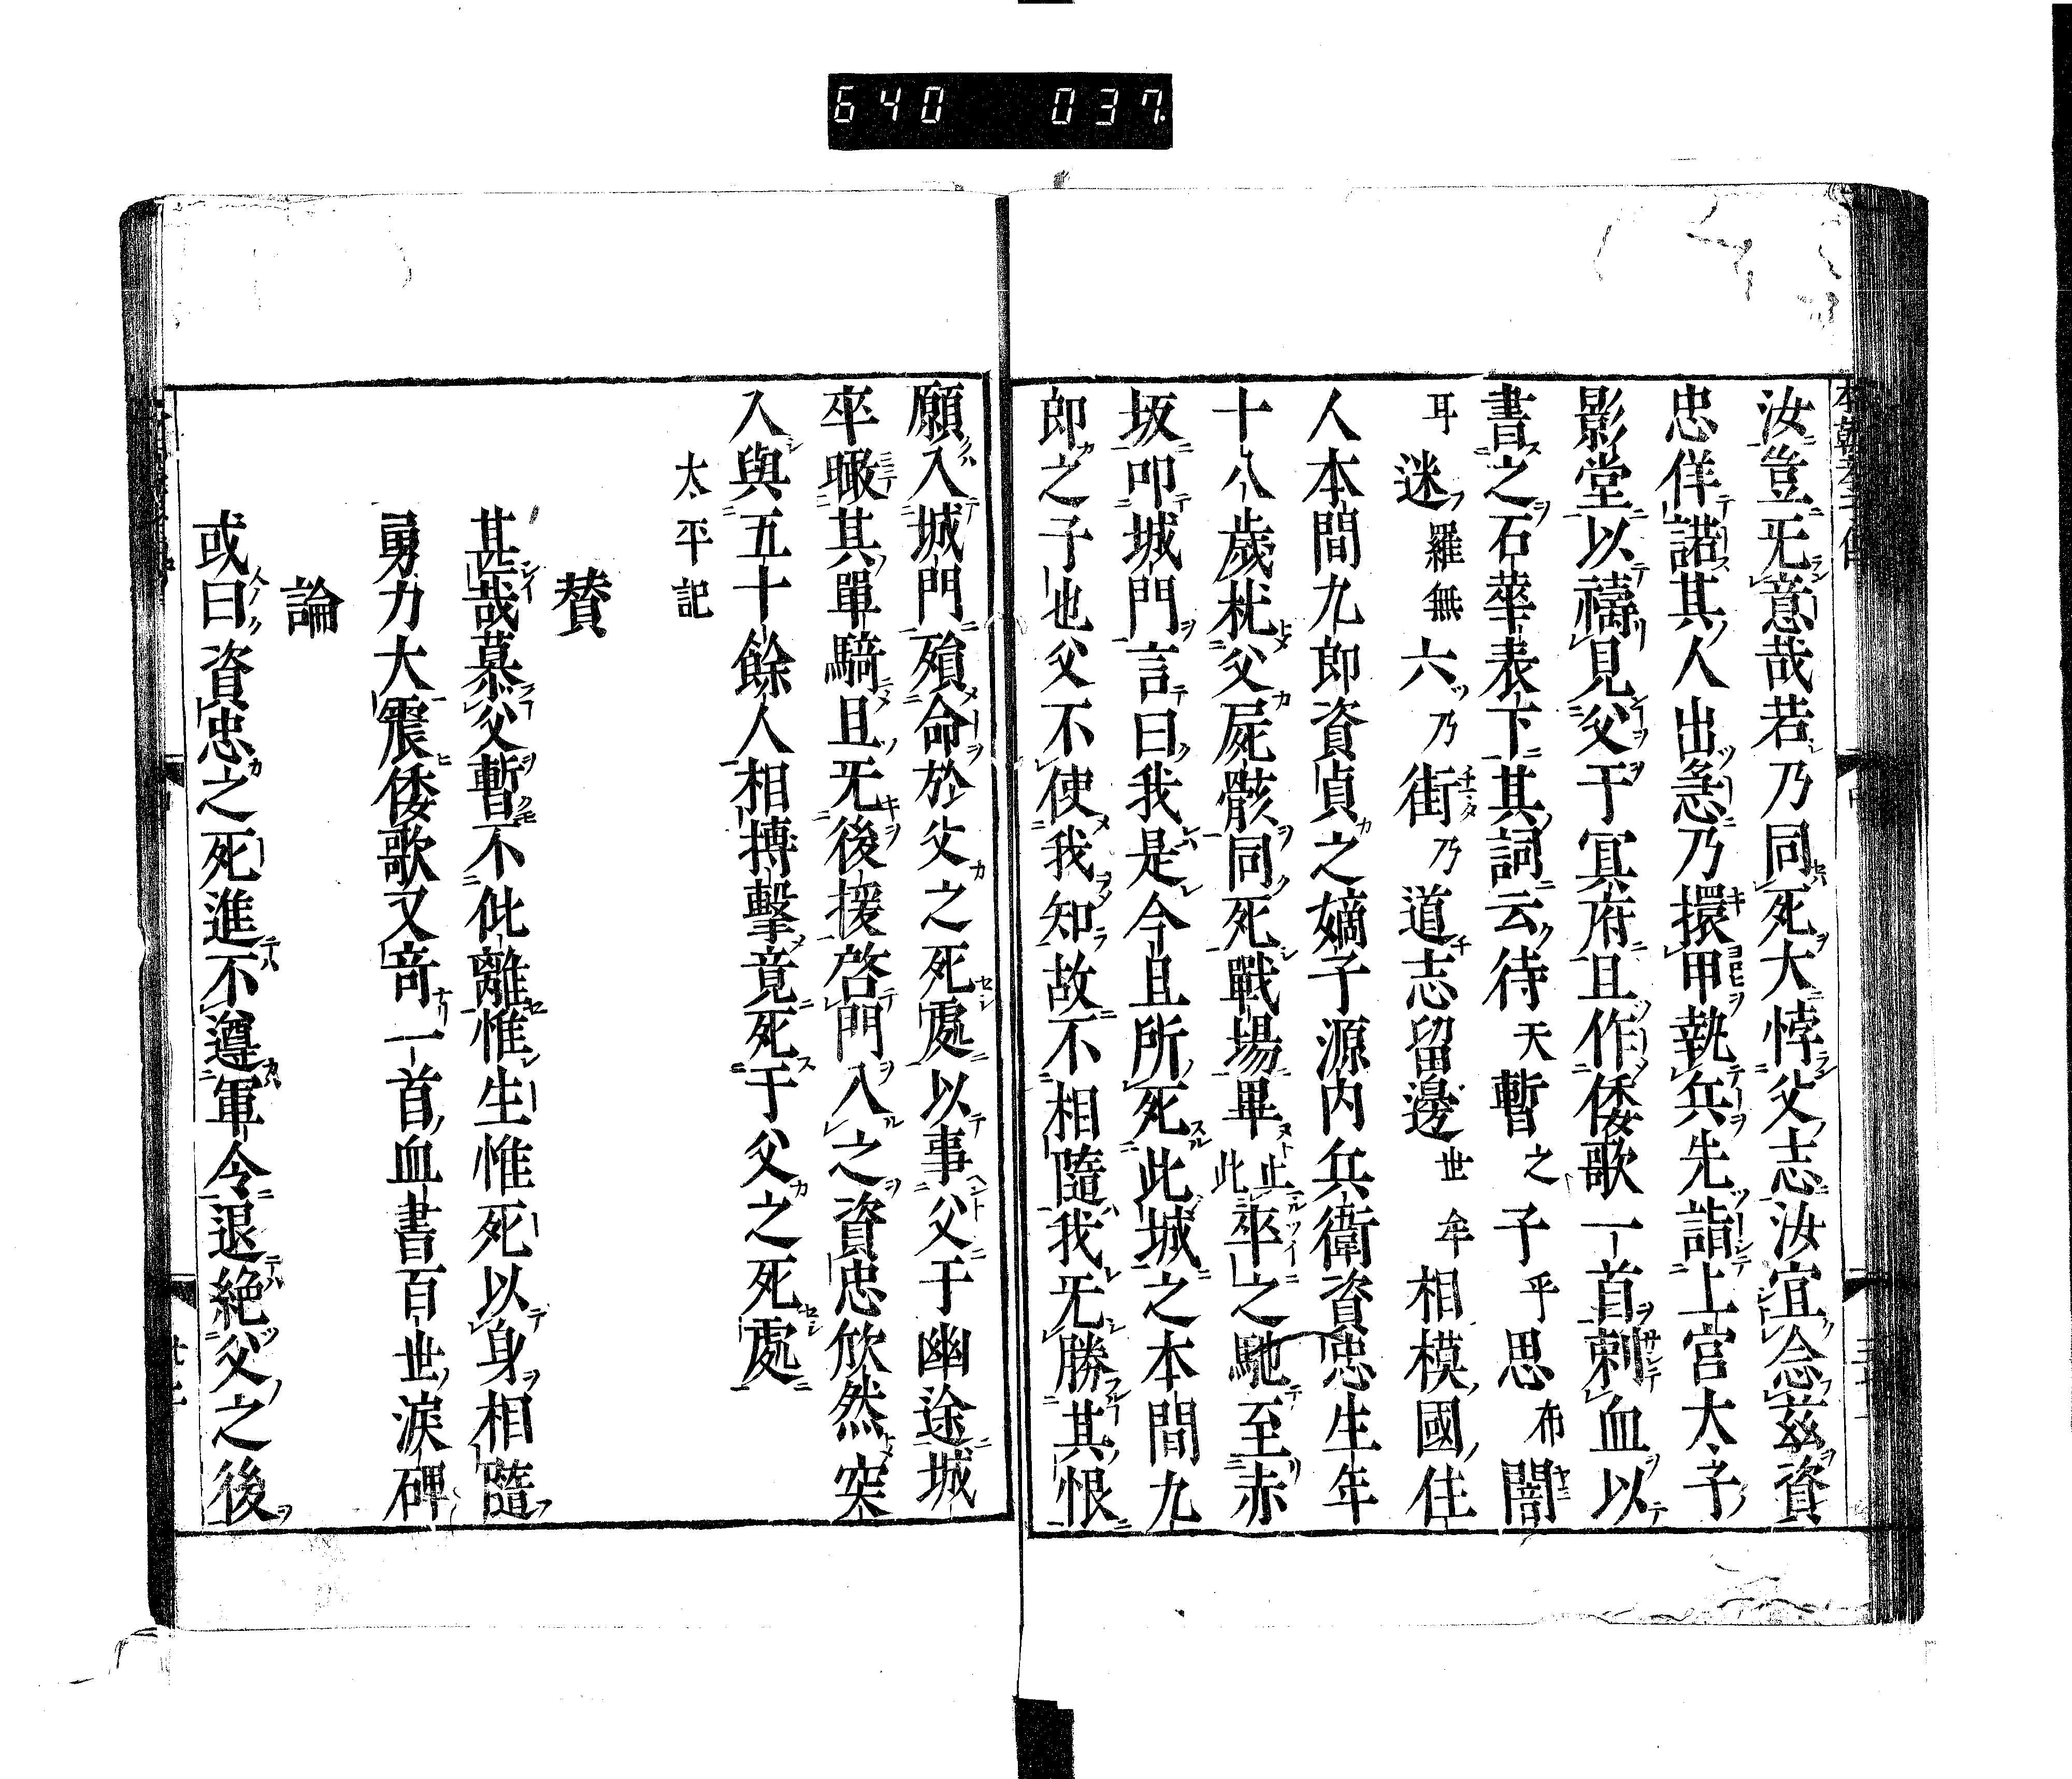 640 037
汝豈旡意哉若乃同死大悖父志汝宜念茲資
忠佯諾其人出急乃擐甲執兵先詣上宮太子
影堂以禱見父于冥府且作倭歌一首刺血以
書之石華表下其詞云待天暫之子乎思布闇
耳迷羅無六乃街乃道志留邊世牟相模國住
人本間九郎資貞之嫡子源内兵衛資忠生年
十八歲枕父屍骸同死戰場畢止此卒之馳至赤
坂叩城門言曰我是今且所死此城之本間九
郎之子也父不使我知故不相隨我旡勝其恨
願入城門殞命於父之死處以事父于幽途城
卒瞰其單騎且旡後援啓門入之資忠欣然突
入與五十餘人相搏擊竟死于父之死處
太平記
贊
甚哉慕父暫不仳離惟生惟死以身相隨
勇力大震倭歌又奇一首血書百世淚碑
論
或曰資忠之死進不遵軍令退絶父之後